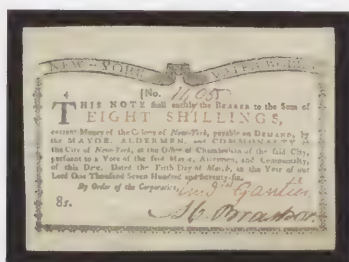 NEW-YORK WATER WORKS
[No. 1405
THIS NOTE shall entitle the BEARER to the Sum of
EIGHT SHILLINGS,
current Money of the Colony of New-York, payable on DEMAND, by
the MAYOR, ALDERMEN, and COMMONALTY of
the City of New-York, at the Office of Chamberlain of the said City,
pursuant to a Vote of the said Mayor, Aldermen, and Commonalty,
of this Date. Dated the Fifth Day of March, in the Year of our
Lord One Thousand Seven Hundred and Seventy-six.
By Order of the Corporation,
8s.